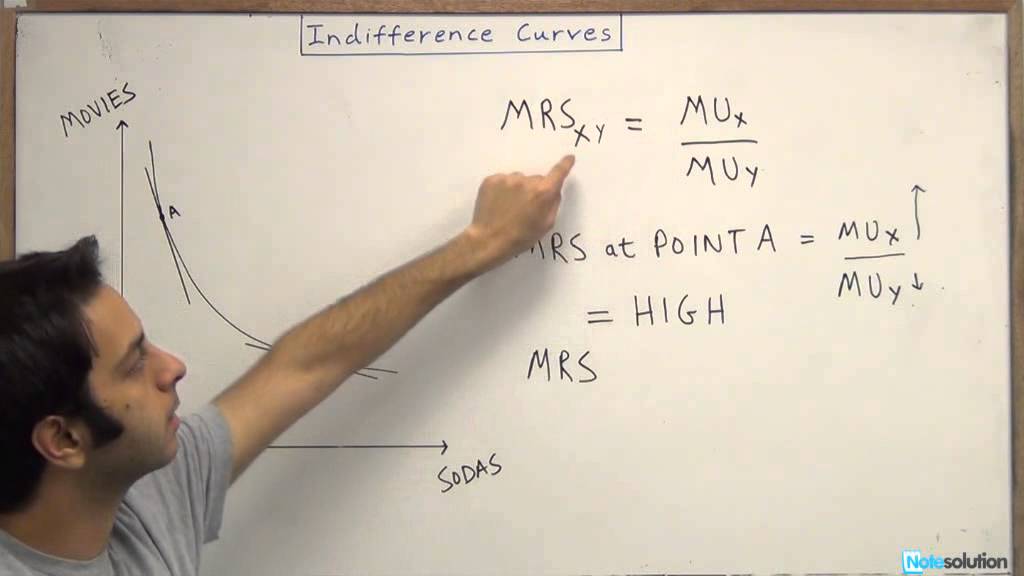 Indifference Curves
MOVIES
A
SODAS
MRSXY = MUX / MUY
MRS at POINT A = MUX ↑ / MUY ↓
= HIGH
MRS
Notesolution